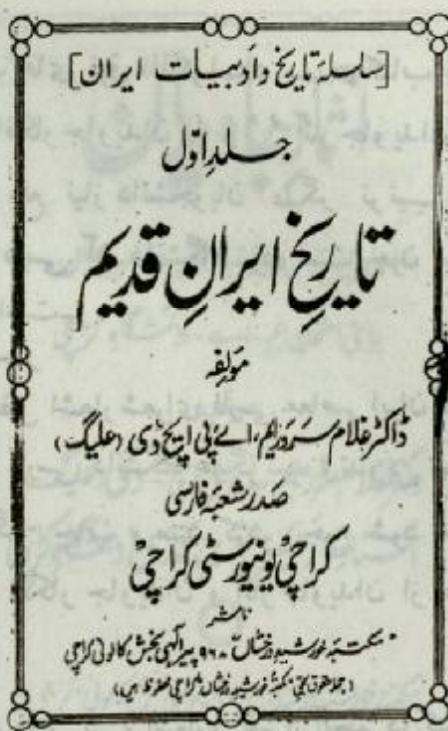 [سلسلۂ تاریخ و ادبیات ایران]
جلد اوّل
تاریخِ ایرانِ قدیم
مؤلفہ
ڈاکٹر غلام سرور ایم، اے پی ایچ ڈی (علیگ)
صدر شعبہ فارسی
کراچی یونیورسٹی کراچی
ناشر
مکتبہ خورشید درخشاں ۹۶۰ پیر الٰہی بخش کالونی کراچی
(جملہ حقوق بحق مکتبۂ خورشید درخشاں کراچی محفوظ ہیں)